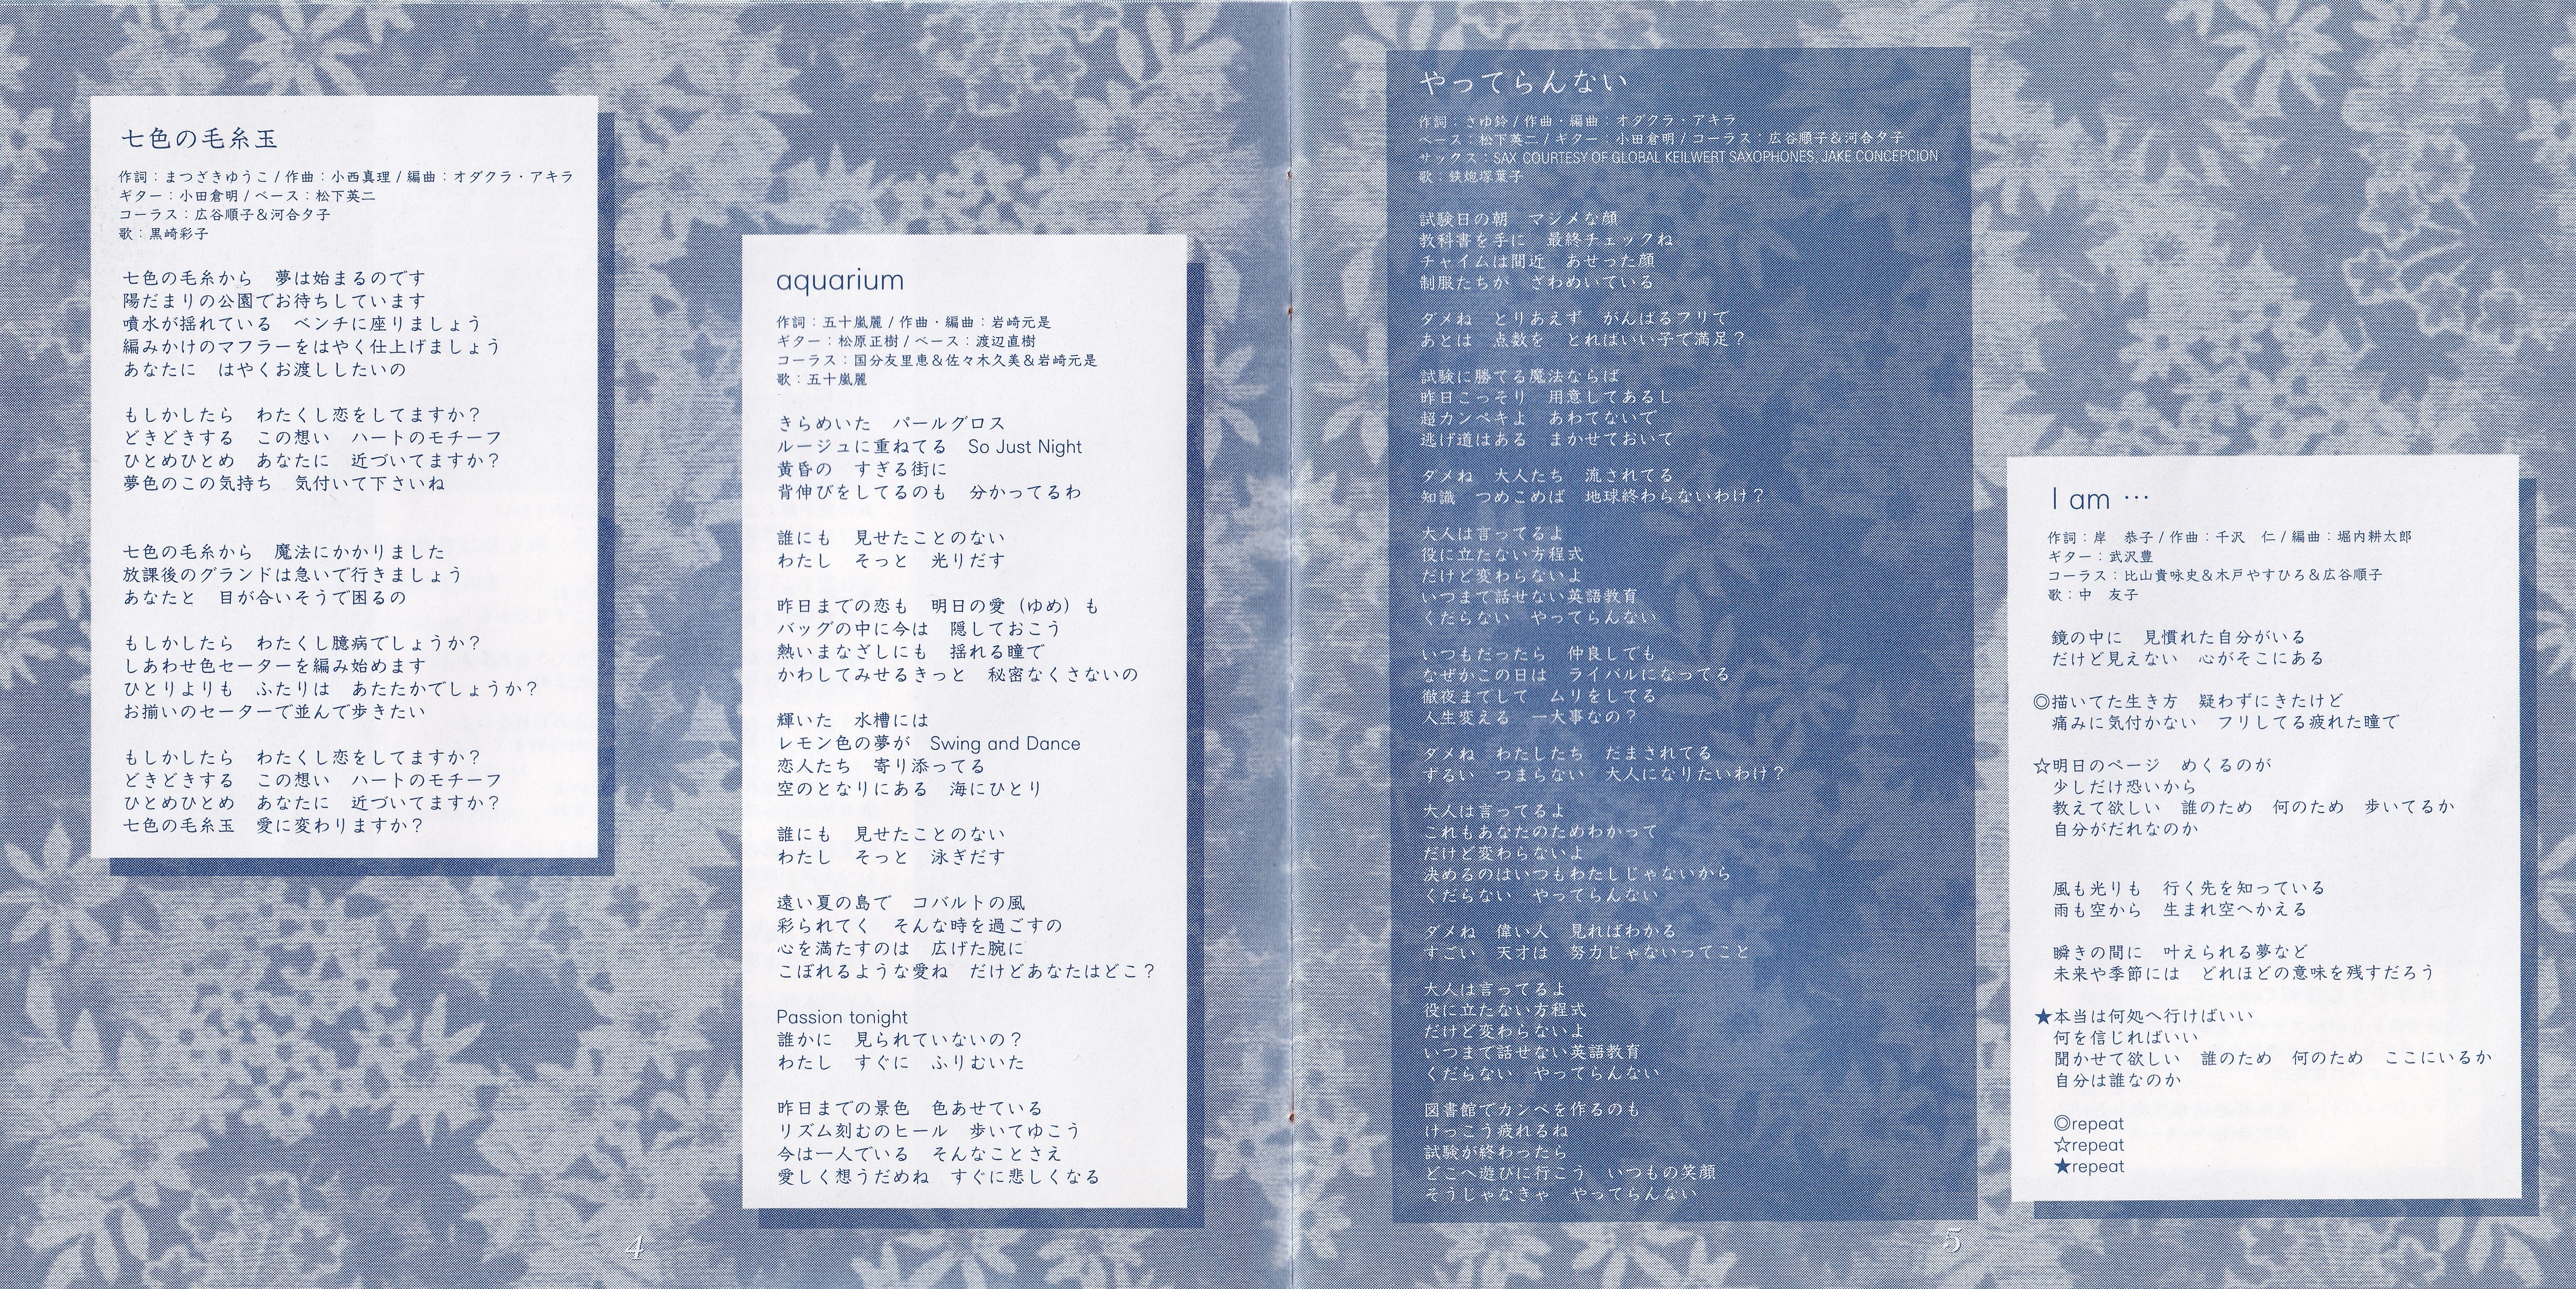 七色の毛糸玉
作詞：まつざきゆうこ / 作曲：小西真理 / 編曲：オダクラ・アキラ
ギター：小田倉明 / ベース：松下英二
コーラス：広谷順子&河合夕子
歌：黒崎彩子
七色の毛糸から　夢は始まるのです
陽だまりの公園でお待ちしています
噴水が揺れている　ベンチに座りましょう
編みかけのマフラーをはやく仕上げましょう
あなたに　はやくお渡ししたいの
もしかしたら　わたくし恋をしてますか？
どきどきする　この想い　ハートのモチーフ
ひとめひとめ　あなたに　近づいてますか？
夢色のこの気持ち　気付いて下さいね
七色の毛糸から　魔法にかかりました
放課後のグランドは急いで行きましょう
あなたと　目が合いそうで困るの
もしかしたら　わたくし臆病でしょうか？
しあわせ色セーターを編み始めます
ひとりよりも　ふたりは　あたたかでしょうか？
お揃いのセーターで並んで歩きたい
もしかしたら　わたくし恋をしてますか？
どきどきする　この想い　ハートのモチーフ
ひとめひとめ　あなたに　近づいてますか？
七色の毛糸玉　愛に変わりますか？
aquarium
作詞：五十嵐麗 / 作曲・編曲：岩崎元是
ギター：松原正樹 / ベース：渡辺直樹
コーラス：国分友里恵&佐々木久美&岩崎元是
歌：五十嵐麗
きらめいた　パールグロス
ルージュに重ねてる　So Just Night
黄昏の　すぎる街に
背伸びをしてるのも　分かってるわ
誰にも　見せたことのない
わたし　そっと　光りだす
昨日までの恋も　明日の愛（ゆめ）も
バッグの中に今は　隠しておこう
熱いまなざしにも　揺れる瞳で
かわしてみせるきっと　秘密なくさないの
輝いた　水槽には
レモン色の夢が　Swing and Dance
恋人たち　寄り添ってる
空のとなりにある　海にひとり
誰にも　見せたことのない
わたし　そっと　泳ぎだす
遠い夏の島で　コバルトの風
彩られてく　そんな時を過ごすの
心を満たすのは　広げた腕に
こぼれるような愛ね　だけどあなたはどこ？
Passion tonight
誰かに　見られていないの？
わたし　すぐに　ふりむいた
昨日までの景色　色あせている
リズム刻むのヒール　歩いてゆこう
今は一人でいる　そんなことさえ
愛しく想うだめね　すぐに悲しくなる
4
やってらんない
作詞：さゆ鈴 / 作曲・編曲：オダクラ・アキラ
ベース：松下英二 / ギター：小田倉明 / コーラス：広谷順子&河合夕子
サックス：SAX COURTESY OF GLOBAL KEILWERT SAXOPHONES, JAKE CONCEPCION
歌：鉄炮塚葉子
試験日の朝　マジメな顔
教科書を手に　最終チェックね
チャイムは間近　あせった顔
制服たちが　ざわめいている
ダメね　とりあえず　がんばるフリで
あとは　点数を　とればいい子で満足？
試験に勝てる魔法ならば
昨日こっそり　用意してあるし
超カンペキよ　あわてないで
逃げ道はある　まかせておいて
ダメね　大人たち　流されてる
知識　つめこめば　地球終わらないわけ？
大人は言ってるよ
役に立たない方程式
だけど変わらないよ
いつまで話せない英語教育
くだらない　やってらんない
いつもだったら　仲良しでも
なぜかこの日は　ライバルになってる
徹夜までして　ムリをしてる
人生変える　一大事なの？
ダメね　わたしたち　だまされてる
ずるい　つまらない　大人になりたいわけ？
大人は言ってるよ
これもあなたのためわかって
だけど変わらないよ
決めるのはいつもわたしじゃないから
くだらない　やってらんない
ダメね　偉い人　見ればわかる
すごい　天才は　努力じゃないってこと
大人は言ってるよ
役に立たない方程式
だけど変わらないよ
いつまで話せない英語教育
くだらない　やってらんない
図書館でカンペを作るのも
けっこう疲れるね
試験が終わったら
どこへ遊びに行こう　いつもの笑顔
そうじゃなきゃ　やってらんない
I am …
作詞：岸　恭子 / 作曲：千沢　仁 / 編曲：堀内耕太郎
ギター：武沢豊
コーラス：比山貴咏史&木戸やすひろ&広谷順子
歌：中　友子
鏡の中に　見慣れた自分がいる
だけど見えない　心がそこにある
◎描いてた生き方　疑わずにきたけど
痛みに気付かない　フリしてる疲れた瞳で
☆明日のページ　めくるのが
少しだけ恐いから
教えて欲しい　誰のため　何のため　歩いてるか
自分がだれなのか
風も光りも　行く先を知っている
雨も空から　生まれ空へかえる
瞬きの間に　叶えられる夢など
未来や季節には　どれほどの意味を残すだろう
★本当は何処へ行けばいい
何を信じればいい
聞かせて欲しい　誰のため　何のため　ここにいるか
自分は誰なのか
◎repeat
☆repeat
★repeat
5